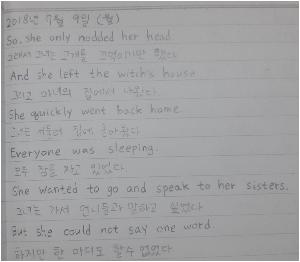 2018년 7월 9일 (월)
So, she only nodded her head.
그래서 그녀는 고개를 끄덕이기만 했다.
And she left the witch's house
그리고 마녀의 집에서 나왔다.
She quickly went back home.
그녀는 서둘러 집에 돌아왔다.
Everyone was sleeping.
모두 잠을 자고 있었다.
She wanted to go and speak to her sisters.
그녀는 가서 언니들과 말하고 싶었다.
But she could not say one word.
하지만 한 마디도 할 수 없었다.